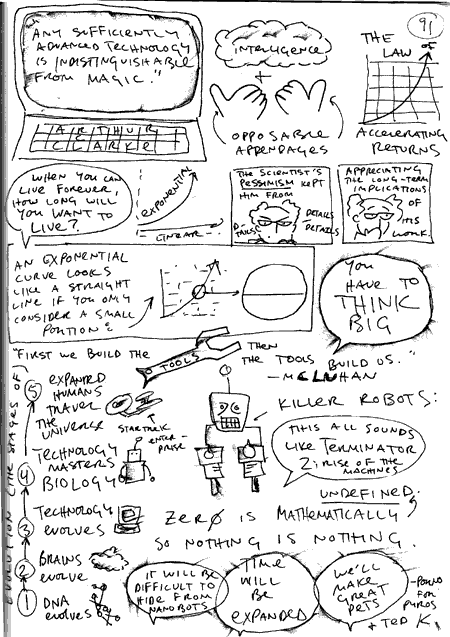 91
"ANY SUFFICIENTLY
ADVANCED TECHNOLOGY
IS INDISTINGUISHABLE
FROM MAGIC."
ARTHUR
CLARKE
INTELLIGENCE
+
OPPOSABLE
APPENDAGES
THE
LAW OF
ACCELERATING
RETURNS
WHEN YOU CAN
LIVE FOREVER,
HOW LONG WILL
YOU WANT TO
LIVE?
EXPONENTIAL
LINEAR
THE SCIENTIST'S
PESSIMISM KEPT
HIM FROM
DETAILS
DETAILS
APPRECIATING
THE LONG-TERM
IMPLICATIONS
OF
HIS
WORK.
AN EXPONENTIAL
CURVE LOOKS
LIKE A STRAIGHT
LINE IF YOU ONLY
CONSIDER A SMALL
PORTION:
YOU
HAVE TO
THINK
BIG
"FIRST WE BUILD THE
TOOLS
THEN
THE TOOLS BUILD US."
—MCLUHAN
EVOLUTION (THE STAGES OF)
5 EXPANDED
HUMANS
TRAVEL
THE
UNIVERSE
STAR TREK
ENTER-
PRISE
KILLER ROBOTS:
THIS ALL SOUNDS
LIKE TERMINATOR
2: RISE OF THE
MACHINES
4 TECHNOLOGY
MASTERS
BIOLOGY
3 TECHNOLOGY
EVOLVES
UNDEFINED
ZERØ IS MATHEMATICALLY
SO NOTHING IS NOTHING.
2 BRAINS
EVOLVE
1 DNA
EVOLVES
IT WILL BE
DIFFICULT TO
HIDE FROM
NANOBOTS
TIME
WILL
BE
EXPANDED
WE'LL
MAKE
GREAT
PETS
FOR
PYROS
+ TED K.